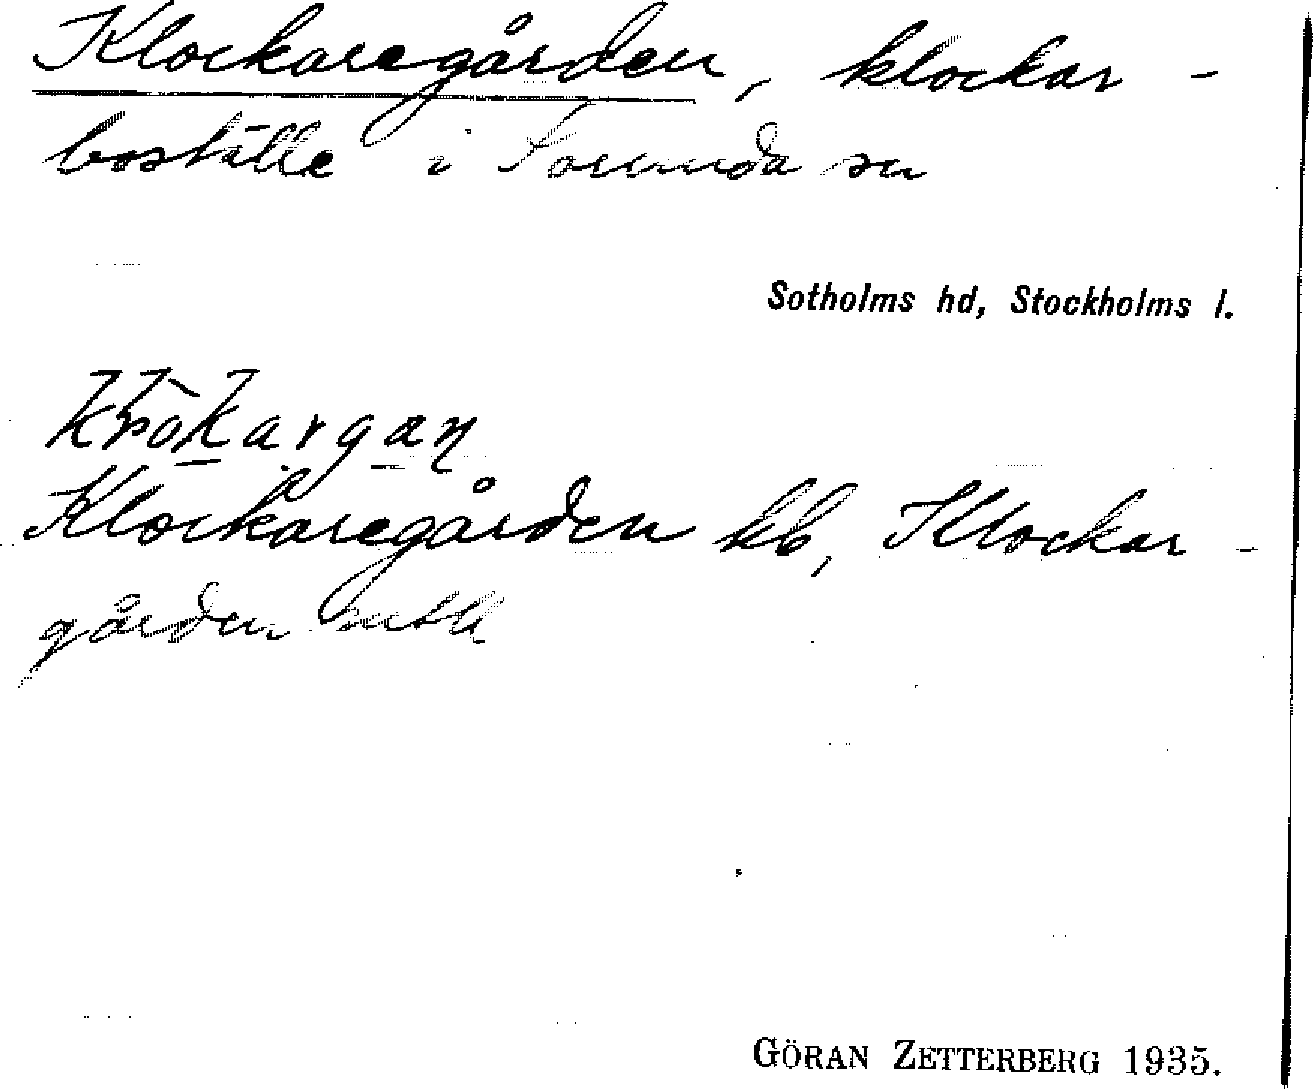 Klockaregården, klockar-
boställe i Sorunda sn
Sotholms hd, Stockholms l.
Klockaregården kb, Klockar-
gården
GÖRAN ZETTERBERG 1935.